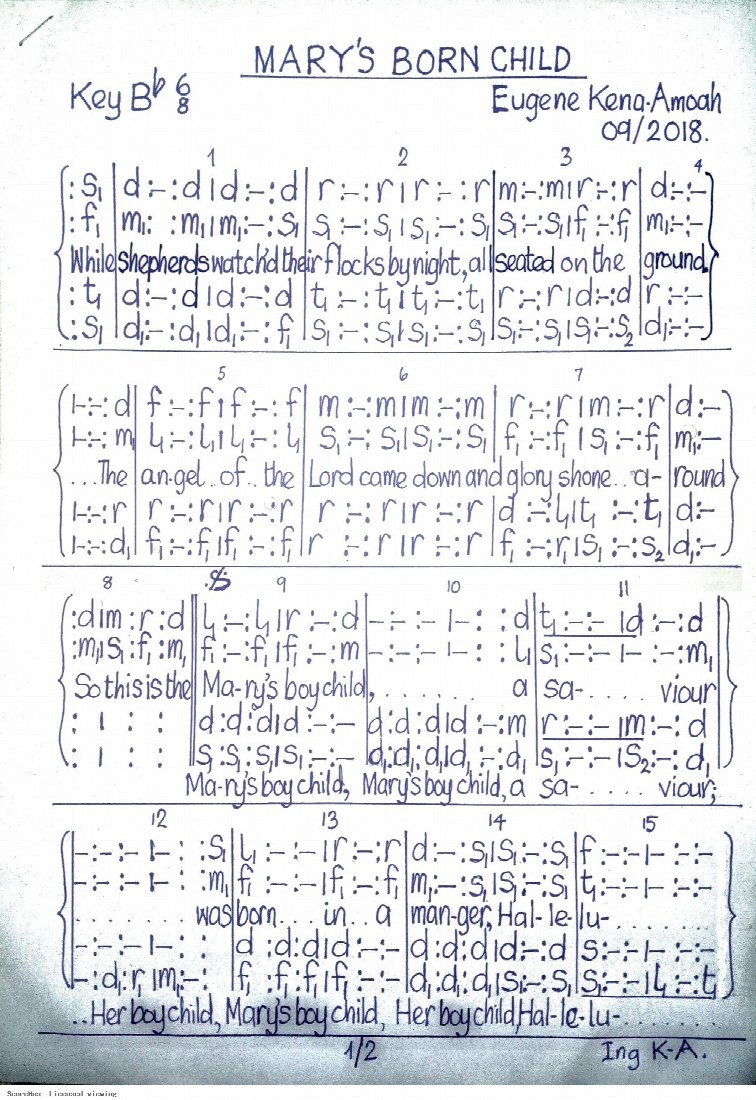 MARY'S BORN CHILD
Key B♭ 6/8
Eugene Kena-Amoah
09/2018.
1 2 3 4
:S₁ | d :-:d | d :-:d | r :-:r | r :-:r | m :-:m | r :-:r | d :-:-
:f₁ | m₁: :m₁ | m₁:-:S₁ | S₁ :-:S₁ | S₁ :-:S₁ | S₁ :-:S₁ | f₁ :-:f₁ | m₁:-:-
While shepherds watch'd their flocks by night, all seated on the ground.
:t₁ | d :-:d | d :-:d | t₁ :-:t₁ | t₁ :-:t₁ | r :-:r | d :-:d | r :-:-
:S₁ | d₁:-:d₁ | d₁:-:f₁ | S₁ :-:S₁ | S₁ :-:S₁ | S₁ :-:S₁ | S₁ :-:S₂ | d₁:-:-
5 6 7
|-:-:d | f :-:f | f :-:f | m :-:m | m :-:m | r :-:r | m :-:r | d :-
|-:-:m₁ | l₁ :-:l₁ | l₁ :-:l₁ | S₁ :-:S₁ | S₁ :-:S₁ | f₁ :-:f₁ | S₁ :-:f₁ | m₁:-
...The an-gel..of..the Lord came down and glory shone..a-round
|-:-:r | r :-:r | r :-:r | r :-:r | r :-:r | d :-:l₁ | t₁ :-:t₁ | d :-
|-:-:d₁ | f₁ :-:f₁ | f₁ :-:f₁ | r :-:r | r :-:r | f₁ :-:r₁ | S₁ :-:S₂ | d₁:-
8 𝄋 9 10 11
:d | m :r :d || l₁ :-:l₁ | r :-:d | - :-:- | - : :d | t₁ :-:- | d :-:d
:m₁ | S₁ :f₁ :m₁ || f₁ :-:f₁ | f₁ :-:m | - :-:- | - : :l₁ | S₁ :-:- | - :-:m₁
So this is the Ma-ry's boy child, ....... a sa-..... viour
: | : : || d :d :d | d :-:- | d :d :d | d :-:m | r :-:- | m :-:d
: | : : || S₁ :S₁ :S₁ | S₁ :-:- | d₁ :d₁ :d₁ | d₁ :-:d₁ | S₁ :-:- | S₂ :-:d₁
Ma-ry's boy child, Mary's boy child, a sa-..... viour;
12 13 14 15
- :-:- | - : :S₁ | l₁ :-:- | r :-:r | d :-:S₁ | S₁ :-:S₁ | f :-:- | - :-:-
- :-:- | - : :m₁ | f₁ :-:- | f₁ :-:f₁ | m₁ :-:S₁ | S₁ :-:S₁ | t₁ :-:- | - :-:-
........ was born...in..a man-ger, Hal-le-lu-........
- :-:- | - : : | d :d :d | d :-:- | d :d :d | d :-:d | S :-:- | - :-:-
- :d₁ :r₁ | m₁ :-: | f₁ :f₁ :f₁ | f₁ :-:- | d₁ :d₁ :d₁ | S₁ :-:S₁ | S₁ :-:- | l₁ :-:t₁
..Her boy child, Mary's boy child, Her boy child, Hal-le-lu-........
1/2
Ing K-A.